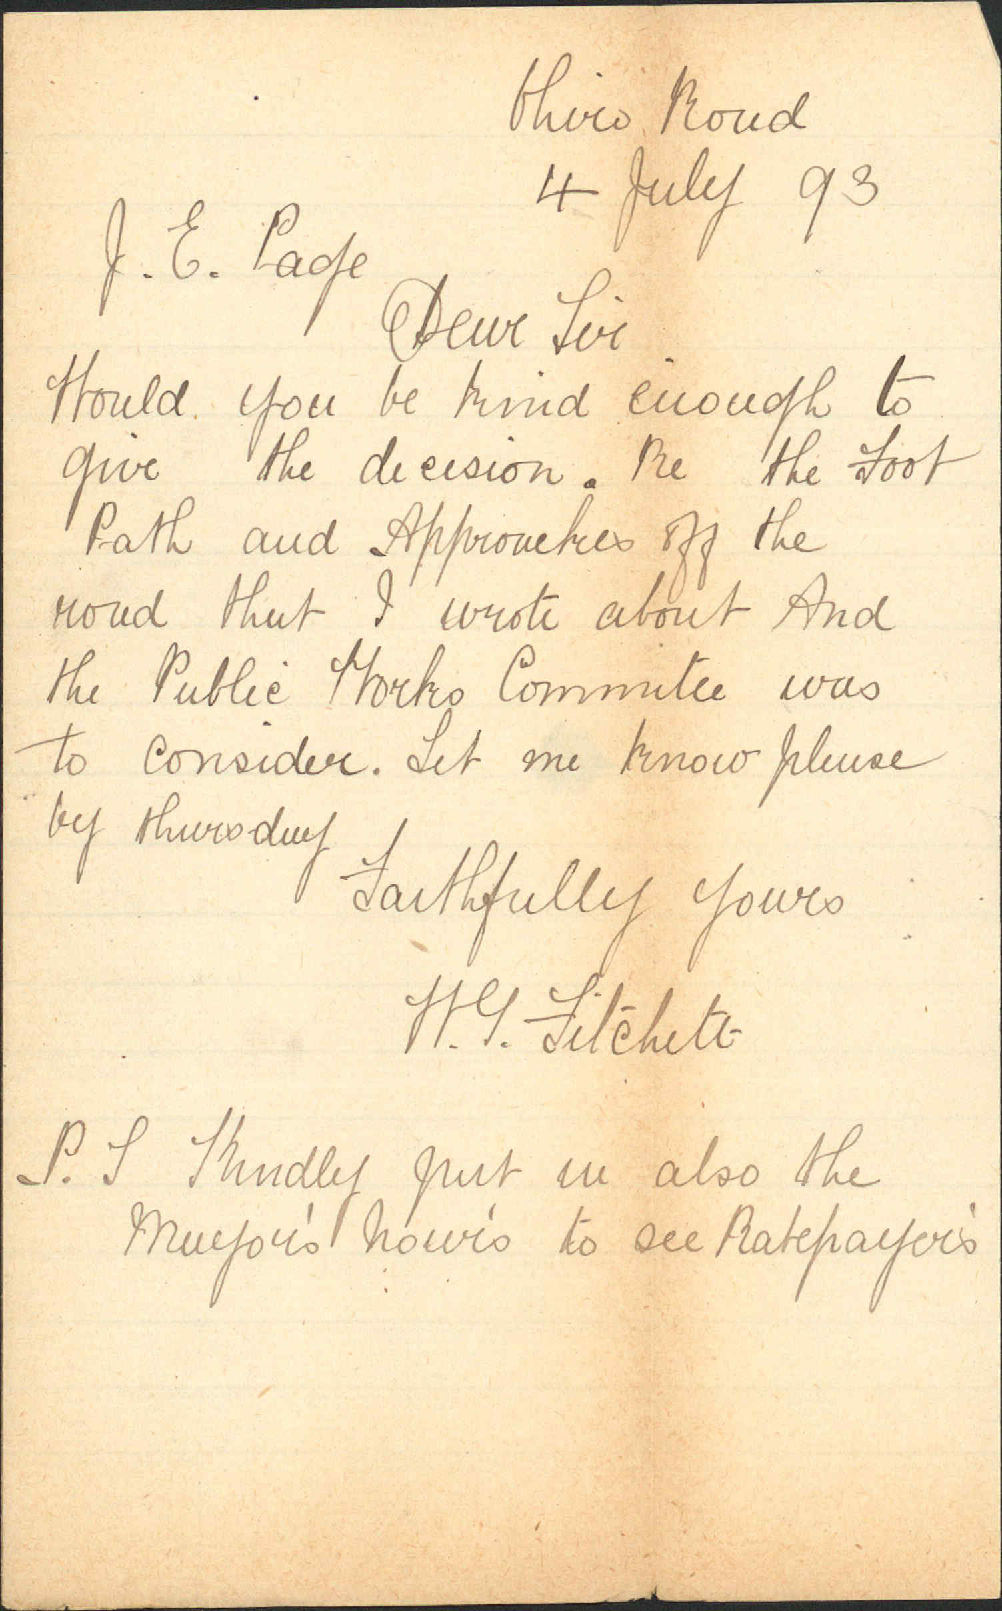 Ohiro Road
4 July 93
J. E. Page
Dear Sir
Would you be kind enough to
give the decision. Re the Foot
Path and Approaches off the
road that I wrote about And
the Public Works Commitee was
to consider. Let me know please
by thursday
Faithfully yours
W. G. Fitchett
P. S Kindly put in also the
Mayor's hour's to see Ratepayer's